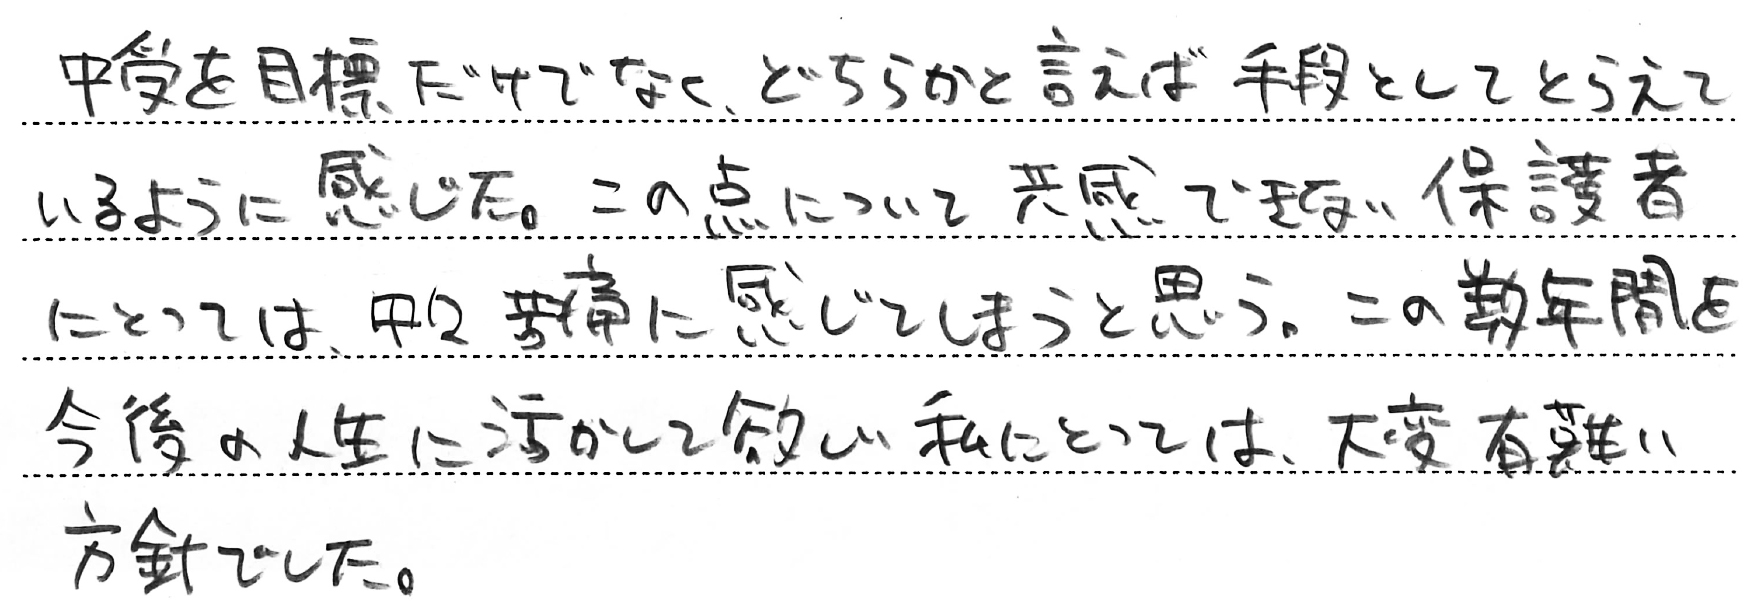 中受を目標だけでなく、どちらかと言えば手段としてとらえて
いるように感じた。この点について共感できない保護者
にとっては、苦痛に感じてしまうと思う。この数年間を
今後の人生に活かして欲しい私にとっては、大変有難い
方針でした。